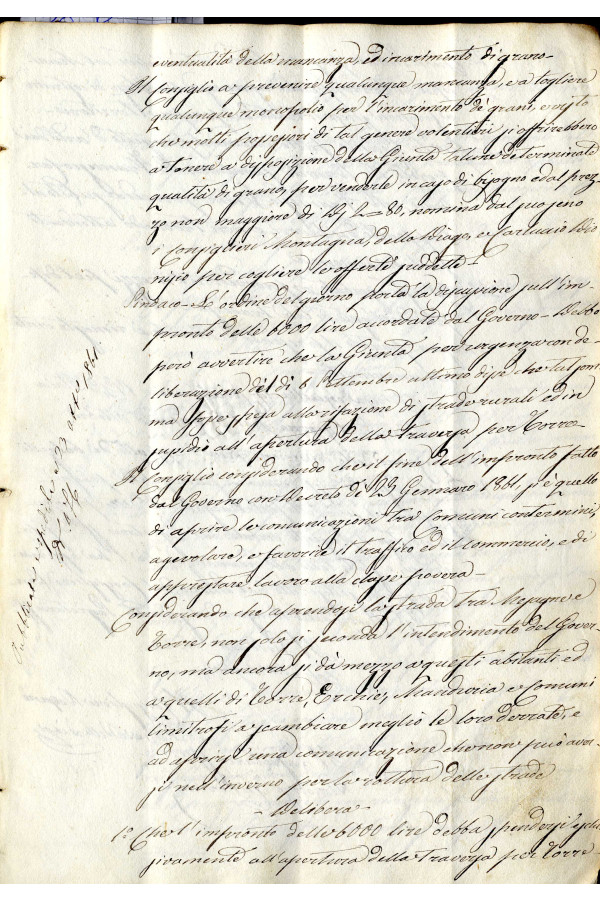 eventualità della mancanza, ed incarimento di grano-
Il Consiglio a prevenire qualunque mancanza, e a togliere
qualunque monopolio per l'incarimento de' grani, e visto
che molti possessori di tal genere volentieri si offrirebbero
a tenere a disposizione della Giunta talune determinate
qualità di grano, per venderle in caso di bisogno e dal prez-
zo non maggiore di D. 2=80, nomina dal suo seno
i Consiglieri Montagna, della Biagio, e
nisio per cogliere le offerte suddette-
Sindaco- L'ordine del giorno porta la discussione sull'im-
pronto delle 6000 lire accordate dal Governo- Debbo
però avvertire che la Giunta per urgenza con de-
liberazione del dì 6 Settembre ultimo disse che tal som-
ma fosse spesa alla rifazione di strade rurali ed in
sussidio all'apertura della traversa per Torre-
Il Consiglio considerando che il fine dell'impronto fatto
dal Governo con Decreto di 23 Gennaro 1861, si è quello
di aprire le comunicazioni tra Comuni contermini,
agevolare, e favorire il traffico ed il commercio, e di
apprestare lavoro alla classe povera-
Considerando che aprendosi la strada tra Mesagne e
Torre, non solo si seconda l'intendimento del Gover-
no, ma ancora si dà mezzo a questi abitanti ed
a quelli di Torre, Erchie, Manduria e Comuni
limitrofi a scambiare meglio le loro derrate, e
ad aprirsi una comunicazione che non può aver-
si nell'inverno per la rottura delle strade
-Delibera-
1.° Che l'impronto delle 6000 lire debba spendersi esclu-
sivamente all'apertura della traversa per Torre-